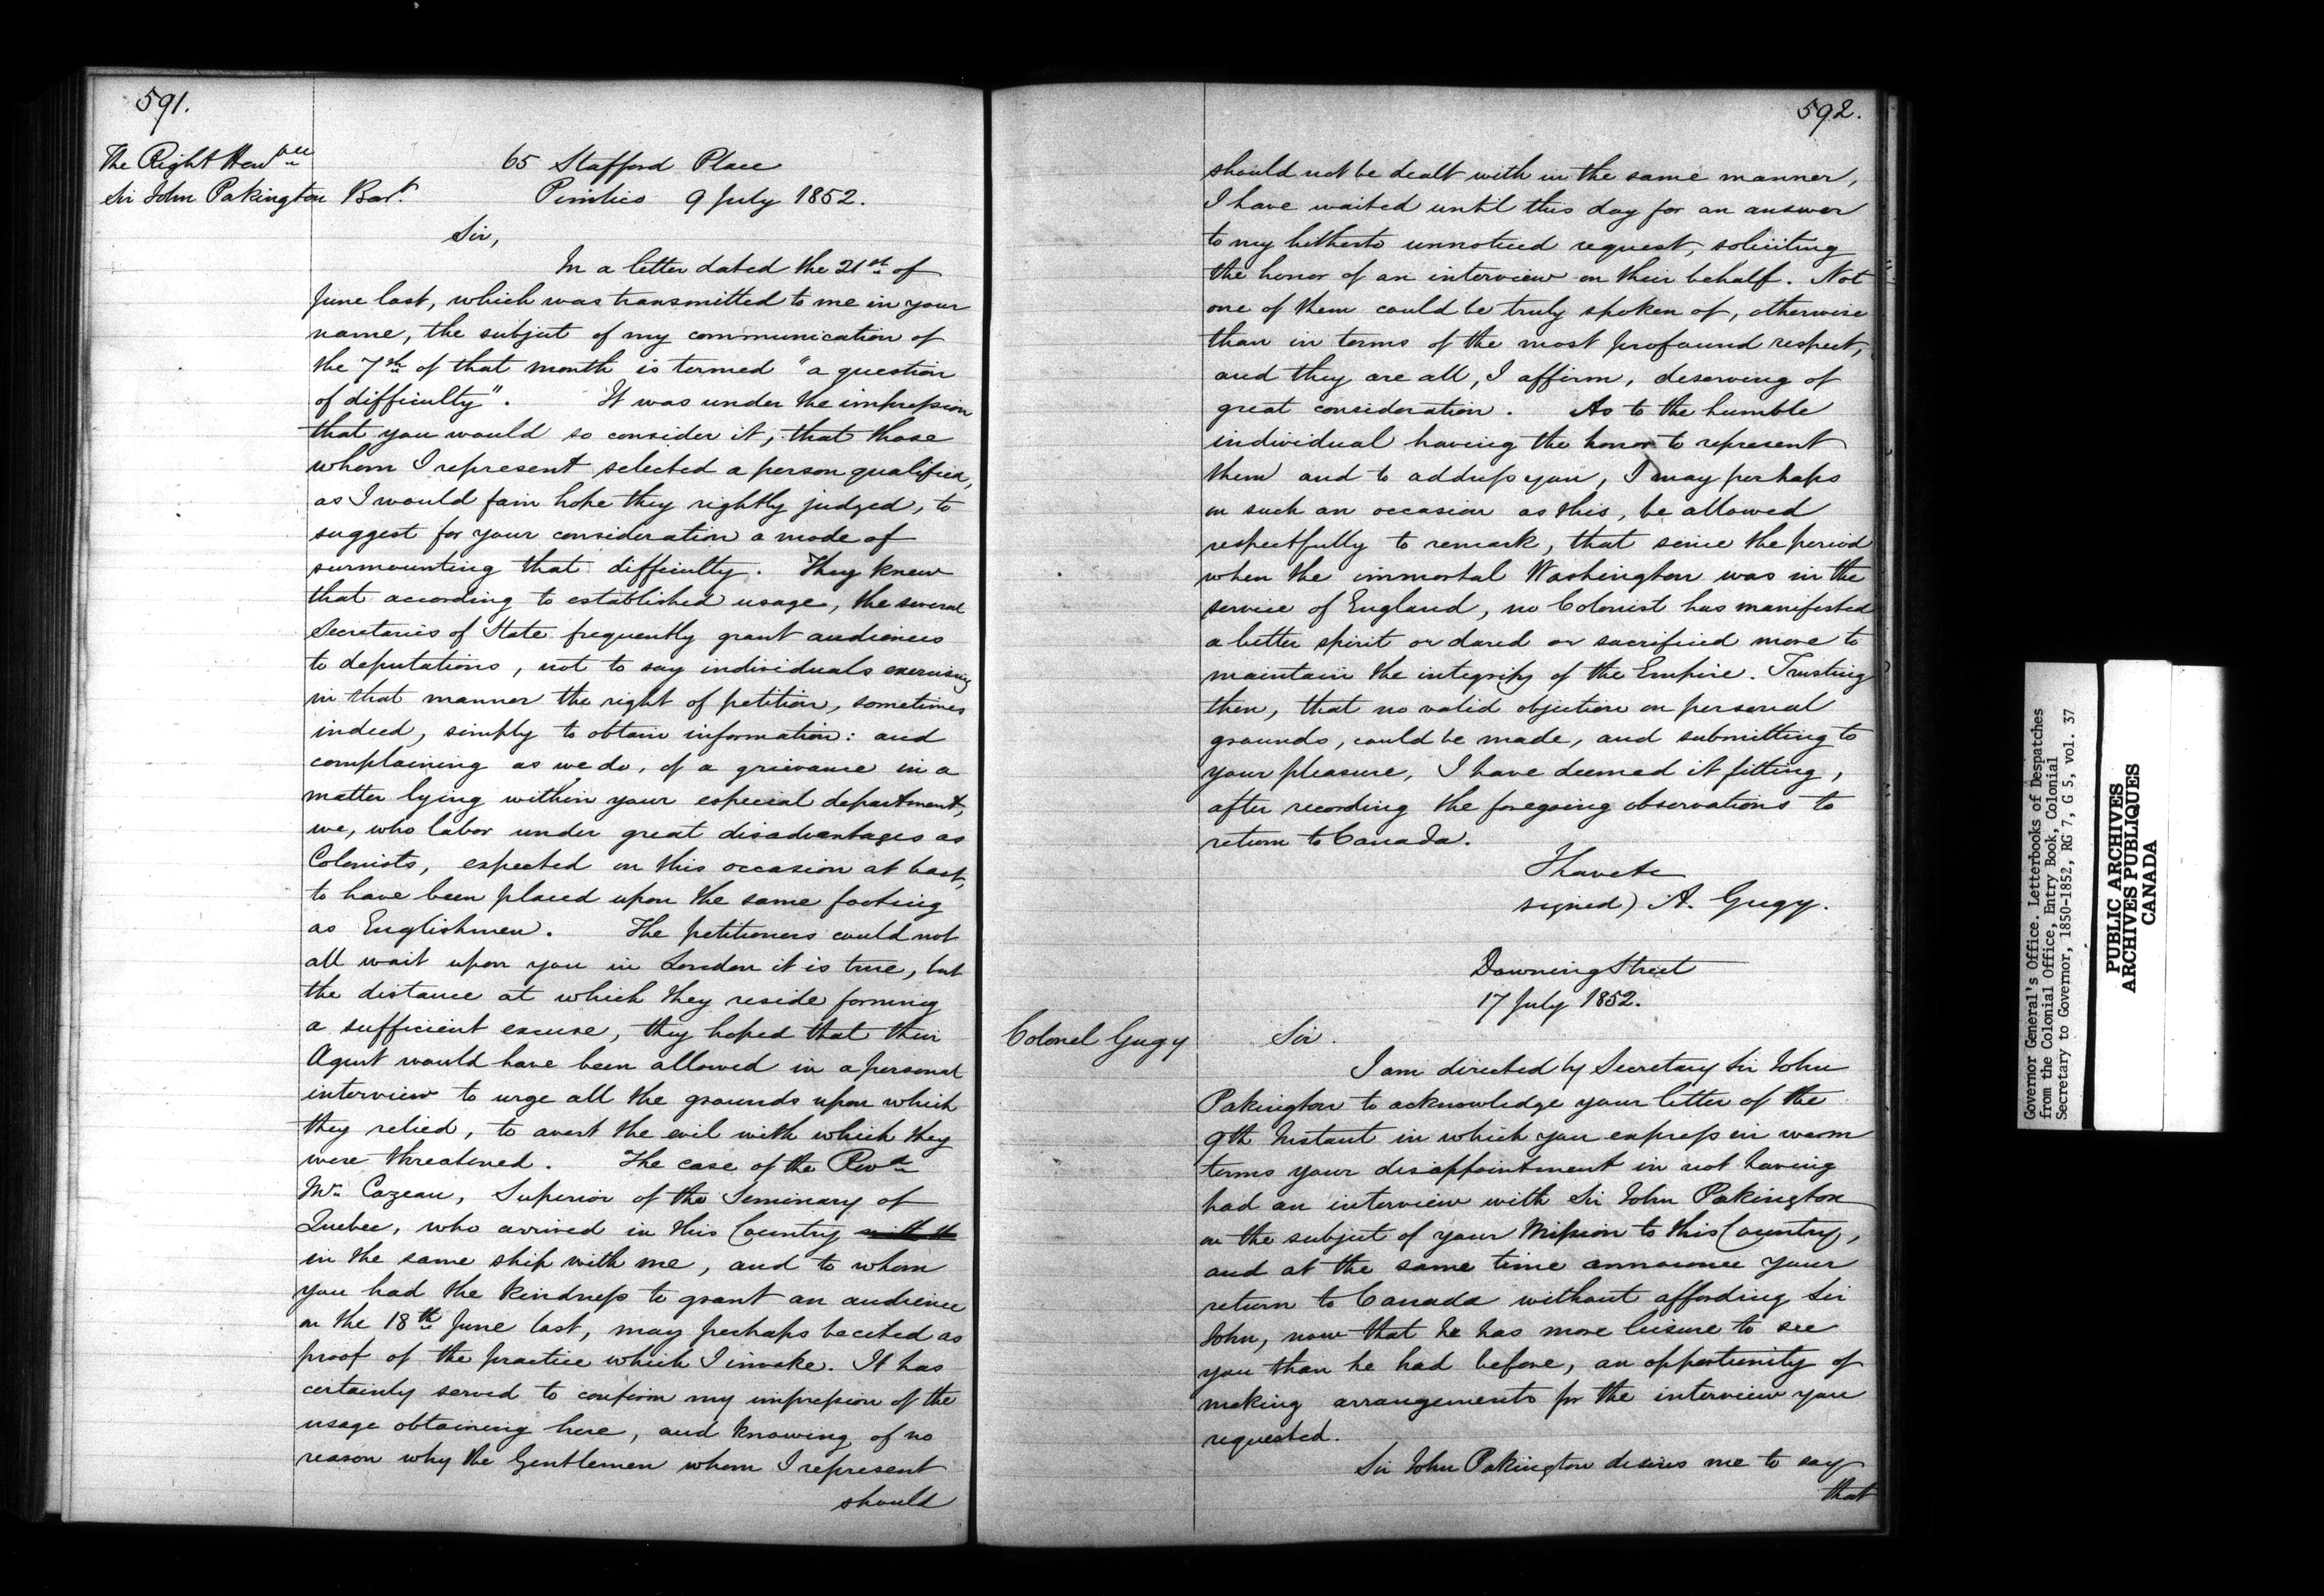 591.
The Right Honble
Sir John Pakington Bart.
65 Stafford Place
Pimlico 9 July 1852.
Sir,
In a letter dated the 21st of
June last, which was transmitted to me in your
name, the subject of my communication of
the 7th of that month is termed "a question
of difficulty". It was under the impression
that you would so consider it, that those
whom I represent selected a person qualified,
as I would fain hope they rightly judged, to
suggest for your consideration a mode of
surmounting that difficulty. They knew
that according to established usage, the several
Secretaries of State frequently grant audiences
to deputations, not to say individuals exercising
in that manner the right of petition, sometimes
indeed, simply to obtain information: and
complaining as we do, of a grievance in a
matter lying within your especial department,
we, who labor under great disadvantages as
Colonists, expected on this occasion at least,
to have been placed upon the same footing
as Englishmen. The petitioners could not
all wait upon you in London it is true, but
the distance at which they reside forming
a sufficient excuse, they hoped that their
Agent would have been allowed in a personal
interview to urge all the grounds upon which
they relied, to avert the evil with which they
were threatened. The case of the Revd
Mr. Cazeau, Superior of the Seminary of
Quebec, who arrived in this Country with th
in the same ship with me, and to whom
you had the kindness to grant an audience
on the 18th June last, may perhaps be cited as
proof of the practice which I invoke. It has
certainly served to confirm my impression of the
usage obtaining here, and knowing of no
reason why the Gentlemen whom I represent
should
592.
should not be dealt with in the same manner,
I have waited until this day for an answer
to my hitherto unnoticed request, soliciting
the honor of an interview on their behalf. Not
one of them could be truly spoken of, otherwise
than in terms of the most profound respect,
and they are all, I affirm, deserving of
great consideration. As to the humble
individual having the honor to represent
them and to address you, I may perhaps
on such an occasion as this, be allowed
respectfully to remark, that since the period
when the immortal Washington was in the
service of England, no Colonist has manifested
a better spirit or dared or sacrificed more to
maintain the integrity of the Empire. Trusting
then, that no valid objection on personal
grounds, could be made, and submitting to
your pleasure, I have deemed it fitting,
after recording the foregoing observations to
return to Canada.
I have &c
signed) A. Gugy.
Downing Street
17 July 1852.
Colonel Gugy
Sir.
I am directed by Secretary Sir John
Pakington to acknowledge your letter of the
9th Instant in which you express in warm
terms your disappointment in not having
had an interview with Sir John Pakington
on the subject of your Mission to this Country,
and at the same time announce your
return to Canada without affording Sir
John, now that he has more leisure to see
you than he had before, an opportunity of
making arrangements for the interview you
requested.
Sir John Pakington desires me to say
that
Governor General's Office. Letterbooks of Despatches
from the Colonial Office, Entry Book, Colonial
Secretary to Governor, 1850-1852, RG 7, G 5, vol. 37
PUBLIC ARCHIVES
ARCHIVES PUBLIQUES
CANADA